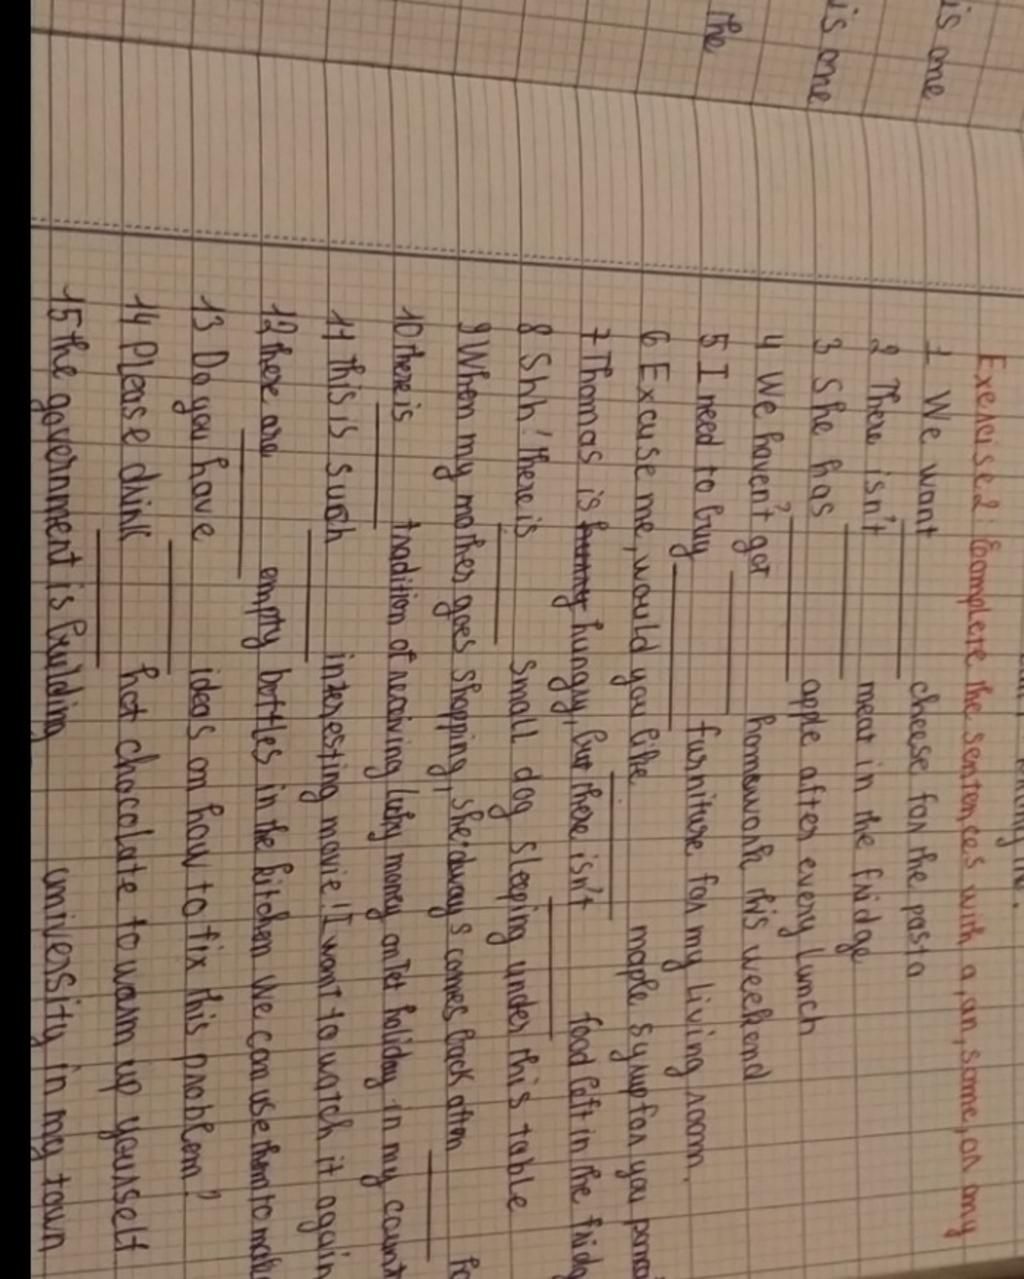 is one
is one
the
Exercise2: Complete the sentences with a, an, some, or any
1 We want ______ cheese for the pasta
2 There isn't ______ meat in the fridge
3 She has ______ apple after every lunch
4 We haven't got ______ homework this weekend
5 I need to buy ______ furniture for my living room.
6 Excuse me, would you like ______ maple syrup for you
7 Thomas is hungry, but there isn't ______ food left in the
8 Shh! there is ______ small dog sleeping under this table
9 When my mother goes shopping, she always comes back after ______
10 there is ______ tradition of receiving lucky money on Tet holiday in my
11 this is such ______ interesting movie! I want to watch it again
12 there are ______ empty bottles in the kitchen we can use them to
13 Do you have ______ ideas on how to fix this problem?
14 Please drink ______ hot chocolate to warm up yourself
15 the government is building ______ university in my town